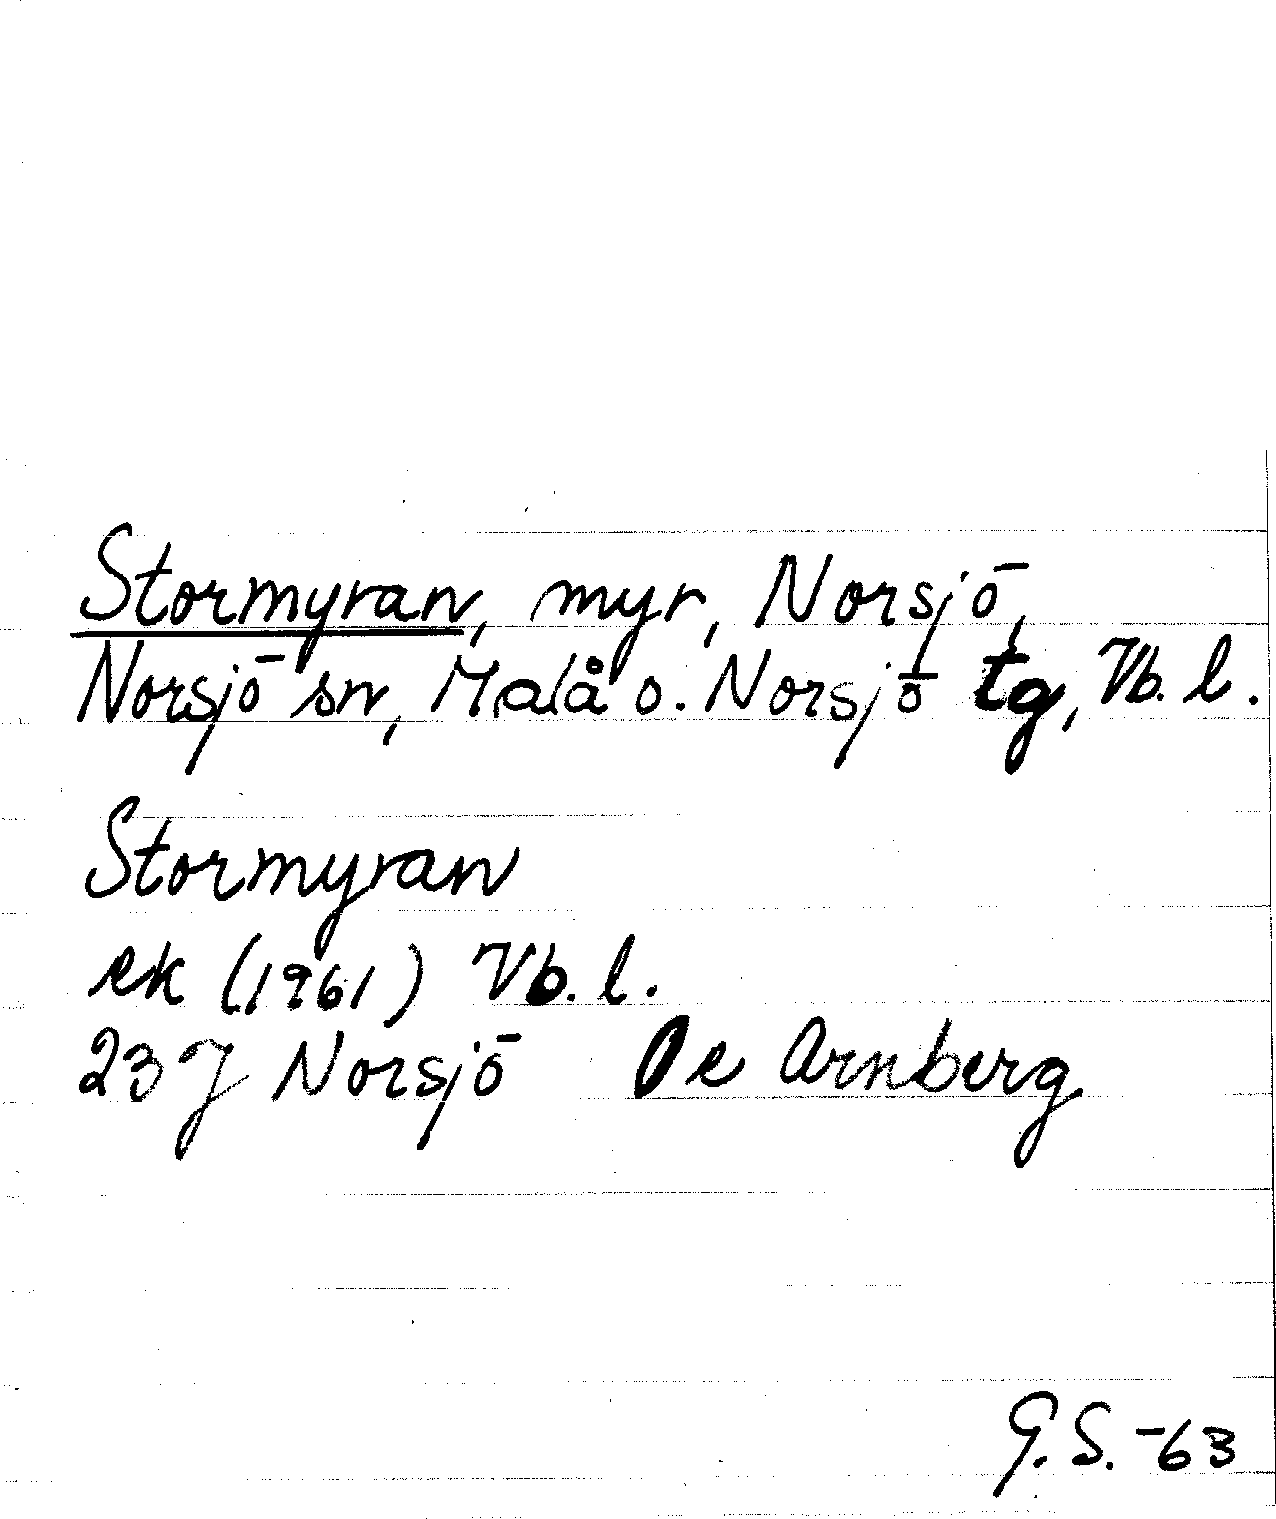 Stormyran, myr, Norsjö,
Norsjö sn, Malå o. Norsjö tg, Vb. l.
Stormyran
ek (1961) Vb. l.
23 J Norsjö De Arnberg
G.S. -63